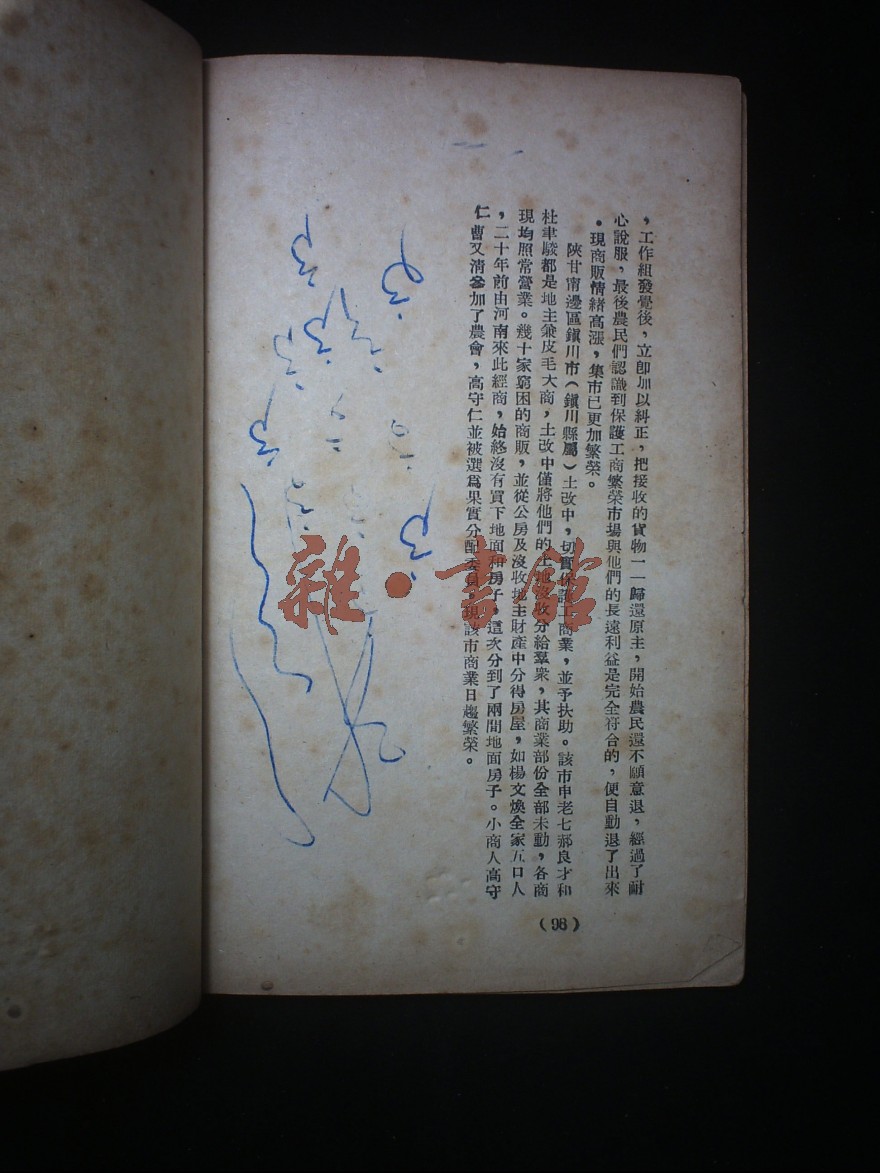 ，工作組發覺後，立卽加以糾正，把接收的貨物一一歸還原主，開始農民還不願意退，經過了耐
心說服，最後農民們認識到保護工商繁荣市場與他們的長遠利益是完全符合的，便自動退了出來
。現商販情緒高漲，集市已更加繁荣。
陝甘甯邊區鎭川市（鎭川縣屬）土改中，切實保護工商業，並予扶助。該市申老七郝良才和
杜聿駿都是地主兼皮毛大商，土改中僅將他們的土地沒收分給羣衆，其商業部份全部未動，各商
現均照常營業。幾十家窮困的商販，並從公房及沒收地主財產中分得房屋，如楊文煥全家五口人
，二十年前由河南來此經商，始終沒有買下地面和房子，這次分到了兩間地面房子。小商人高守
仁曹又清參加了農會，高守仁並被選爲果實分配委員，現該市商業日趨繁荣。
（98）
雜·書館